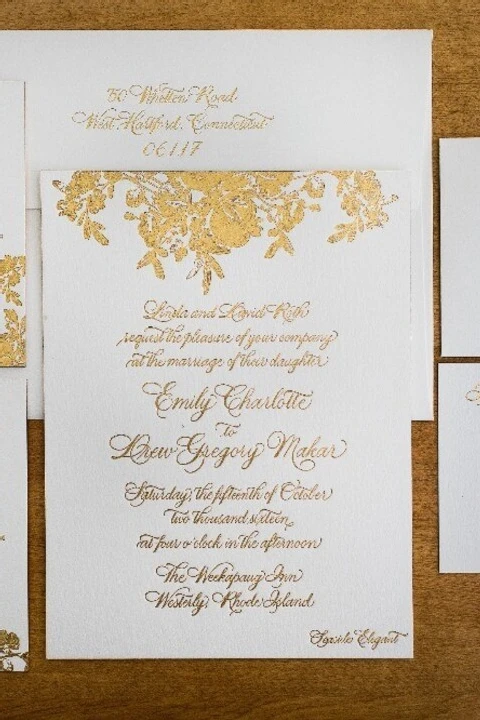 50 Whetten Road
West Hartford, Connecticut
06117
Linda and David Roth
request the pleasure of your company
at the marriage of their daughter
Emily Charlotte
to
Drew Gregory Makar
Saturday, the fifteenth of October
two thousand sixteen
at four o'clock in the afternoon
The Weekapaug Inn
Westerly, Rhode Island
Seaside Elegant